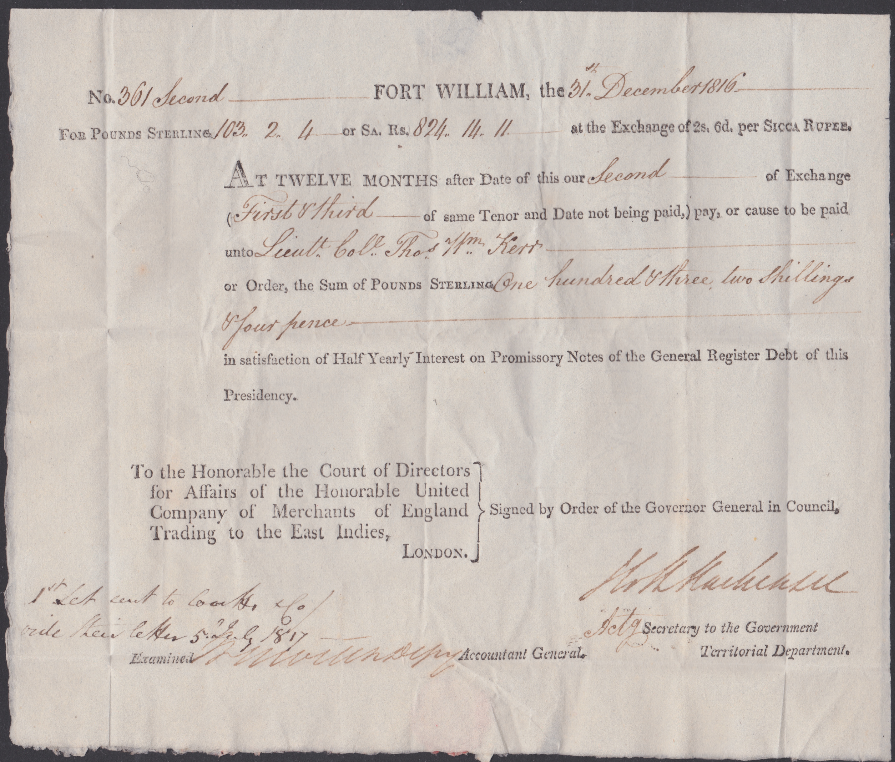 No. 361 Second FORT WILLIAM, the 31st December 1816
FOR POUNDS STERLING, 103.. 2.. 4 or SA. RS. 824.. 14.. 11 at the Exchange of 2s. 6d. per SICCA RUPEE.
AT TWELVE MONTHS after Date of this our Second of Exchange
(First & third of same Tenor and Date not being paid,) pay, or cause to be paid
unto Lieut. Coll. Thos. Wm. Kerr
or Order, the Sum of POUNDS STERLING One hundred & three, two shillings
& four pence
in satisfaction of Half Yearly Interest on Promissory Notes of the General Register Debt of this
Presidency.
To the Honorable the Court of Directors
for Affairs of the Honorable United
Company of Merchants of England
Trading to the East Indies,
LONDON.
Signed by Order of the Governor General in Council,
Mackenzie
Actg Secretary to the Government
Territorial Department.
1st Set sent to & Co/
vide their letter 5th July 1817
Examined Depy Accountant General.